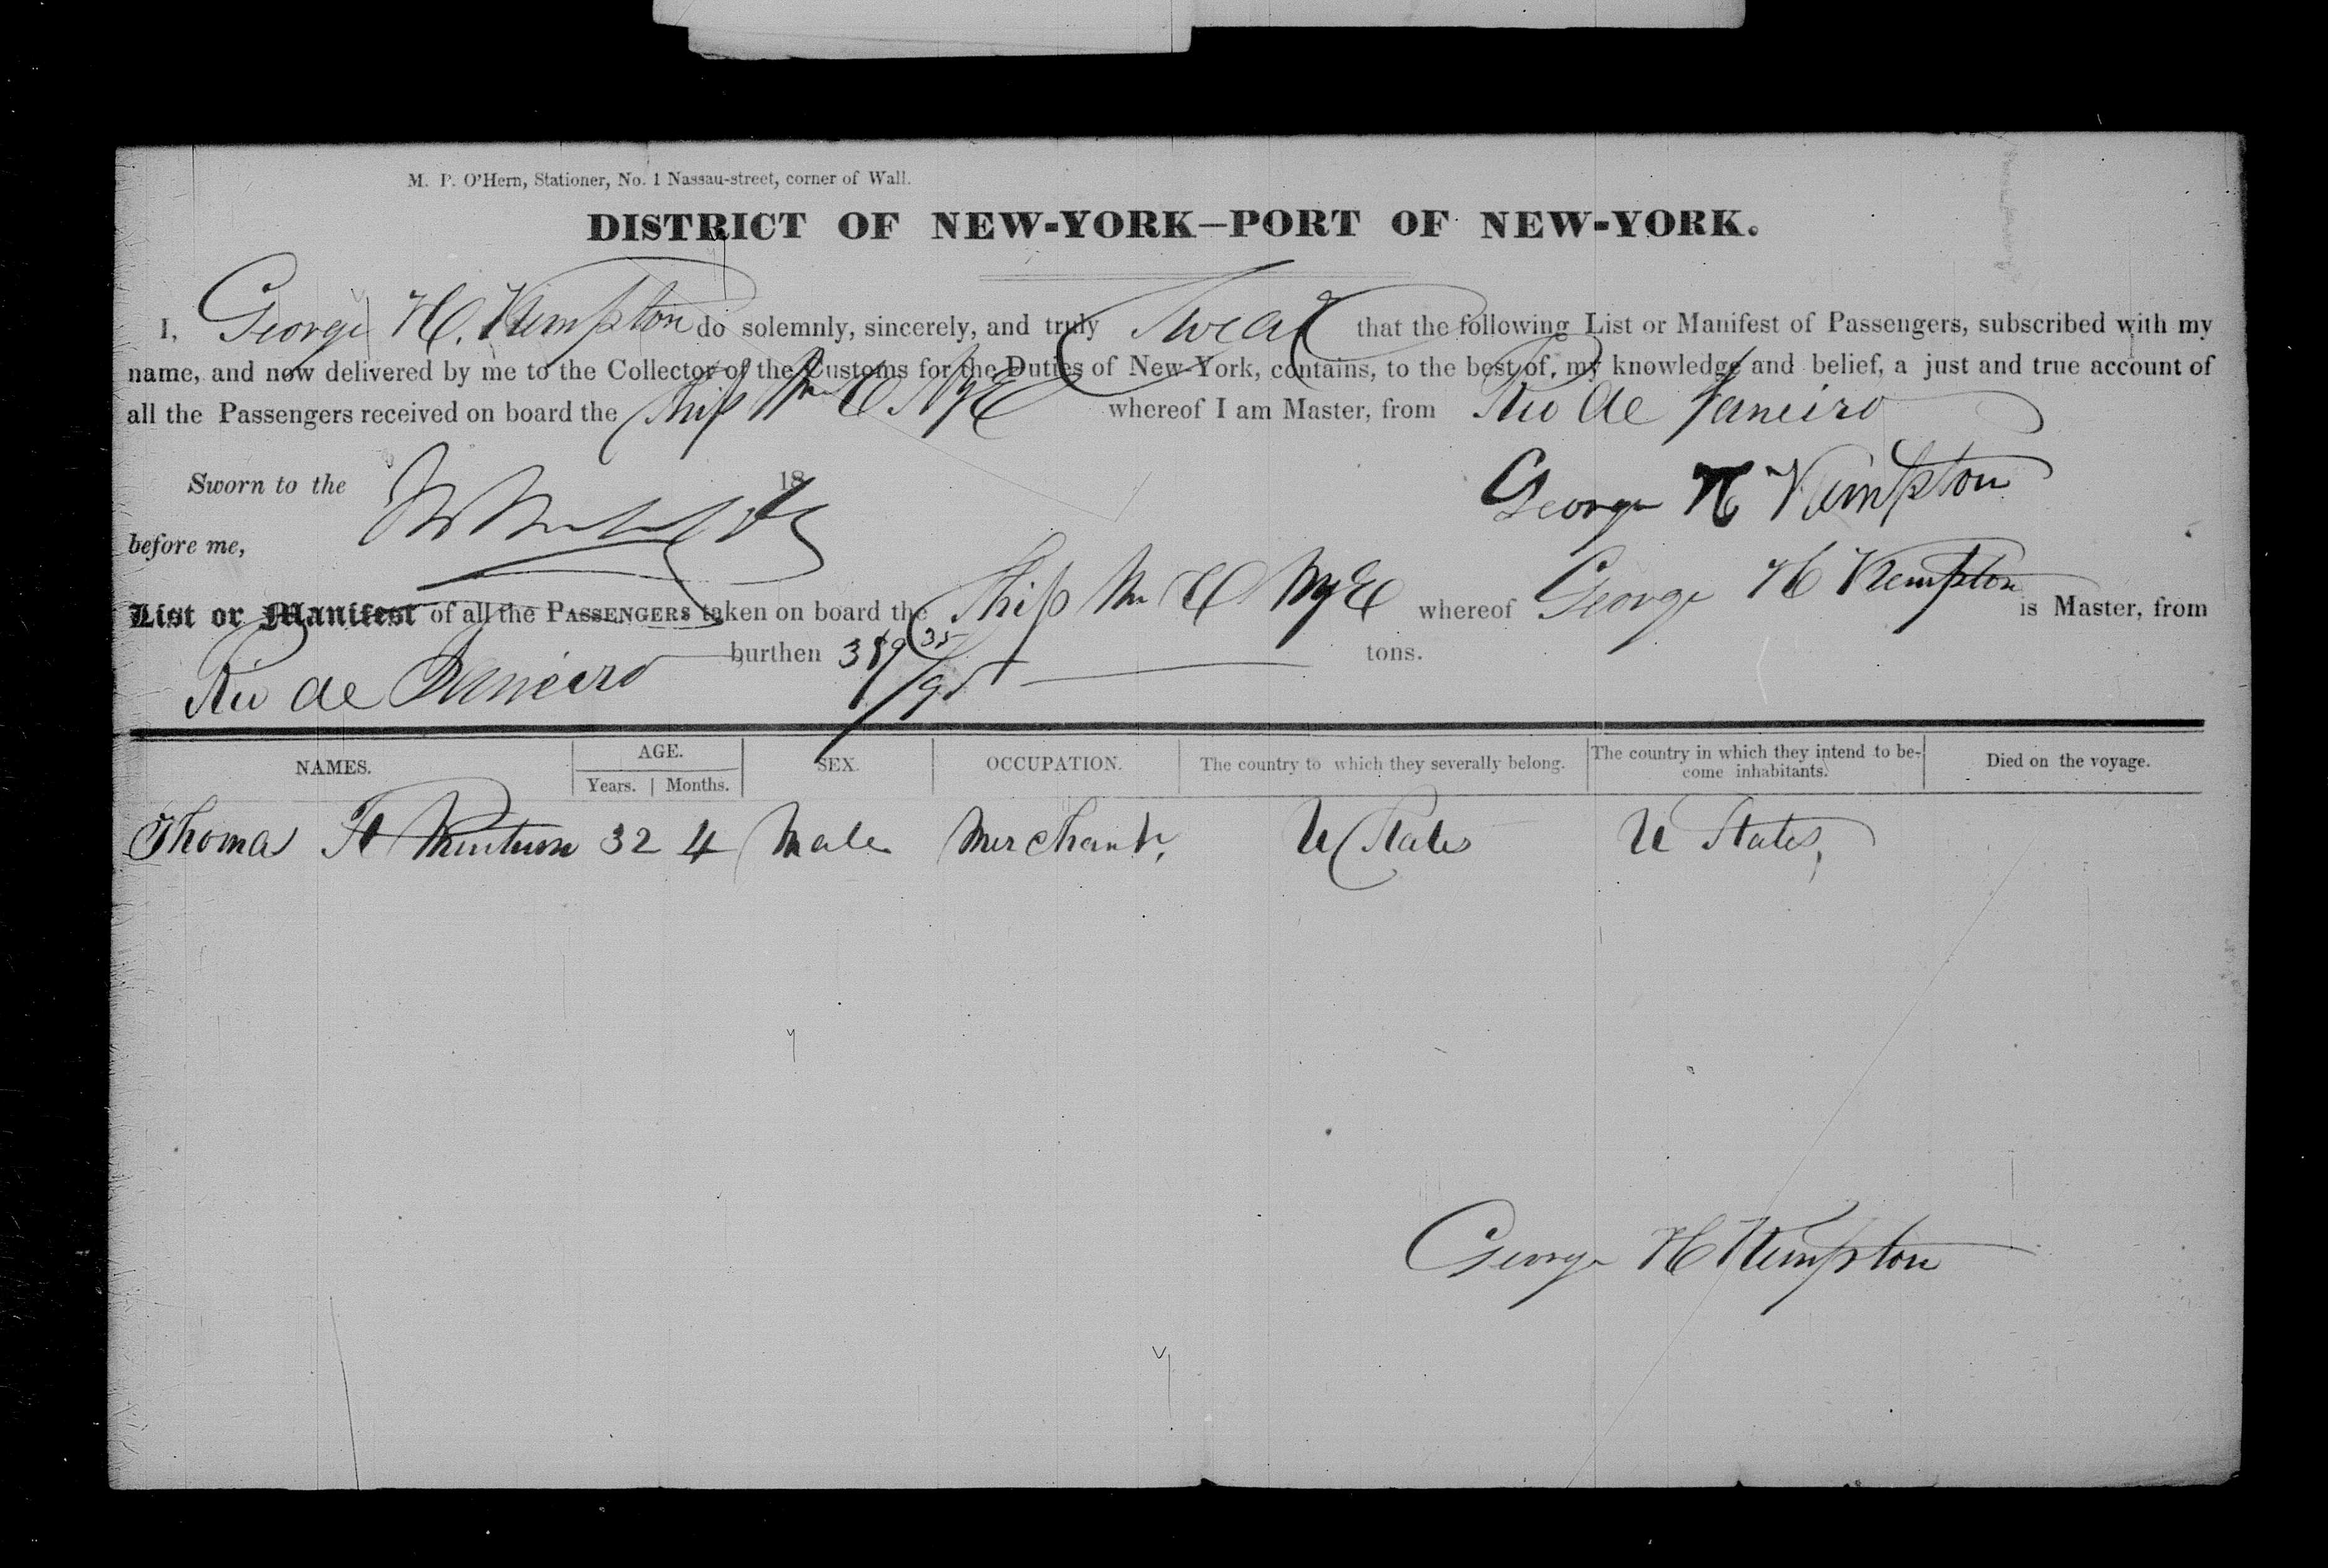 M. P. O'Hern, Stationer, No. 1 Nassau-street, corner of Wall.
DISTRICT OF NEW-YORK—PORT OF NEW-YORK.
I, George H. Kempton do solemnly, sincerely, and truly Swear that the following List or Manifest of Passengers, subscribed with my
name, and now delivered by me to the Collector of the Customs for the Duties of New-York, contains, to the best of my knowledge and belief, a just and true account of
all the Passengers received on board the Ship Wm C Nye whereof I am Master, from Rio de Janeiro
Sworn to the 18
George H Kempton
before me,
List or Manifest of all the PASSENGERS taken on board the Ship Wm C Nye whereof George H Kempton is Master, from
Rio de Janeiro burthen 389 35/95 tons.
NAMES. AGE. SEX. OCCUPATION. The country to which they severally belong. The country in which they intend to be- Died on the voyage.
Years. Months. come inhabitants.
Thomas 32 4 Male Merchant, U States U States,
George H Kempton